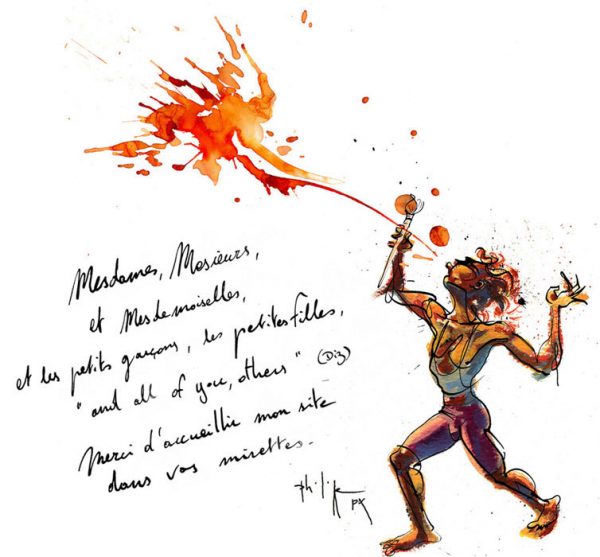 Mesdames, Mosieurs,
et Mesdemoiselles,
et les petits garçons, les petites filles,
"and all of you, others" (Diz)
Merci d'accueillir mon site
dans vos mirettes.
Philip
PX